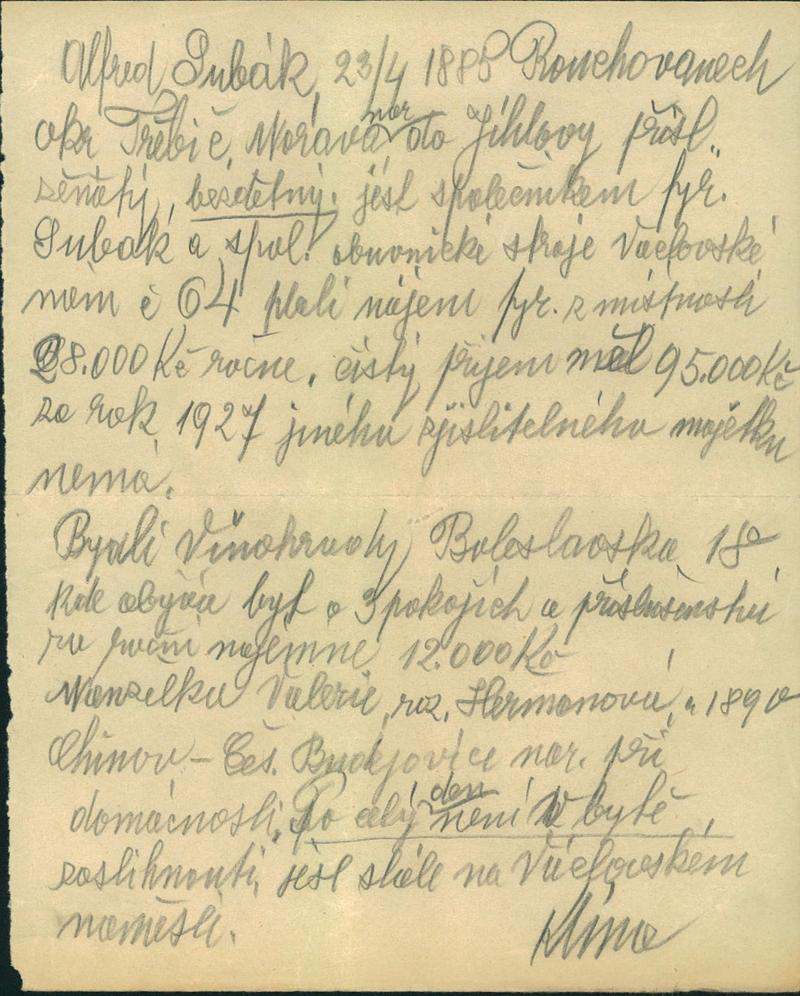 Alfred Subák, 23/4 1885 Rouchovanech
okr Třebíč, Morava nar do Jihlavy přísl.
ženatý, bezdětný. jest společníkem fyr.
Subák a spol. obuvnické stroje Václavské
nám č 64 platí nájem fyr. z místnosti
28.000 Kč ročne, čistý příjem měl 95.000 Kč
za rok 1927 jmého zjistitelného majetku
nemá.
Bydlí Vinohrady Boleslavska 18
kde obývá byt o 3 pokojích a příslušenství
za roční nájemné 12.000 Kč
Manželka Valerie, roz. Hermanová, 1890
Chýnov - Čes. Budějovice nar. při
domácnosti. Po celý den není v bytě
zastihnouti, jest stále na Václavském
náměstí. Klíma